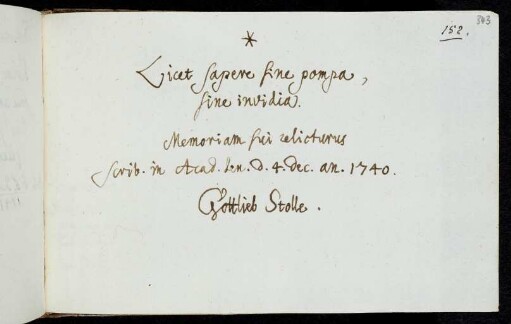 343
152.
*
Licet sapere sine pompa,
sine invidia.
Memoriam sui relicturus
scrib. in Acad. Jen. d. 4. dec. an. 1740.
Gottlieb Stolle.